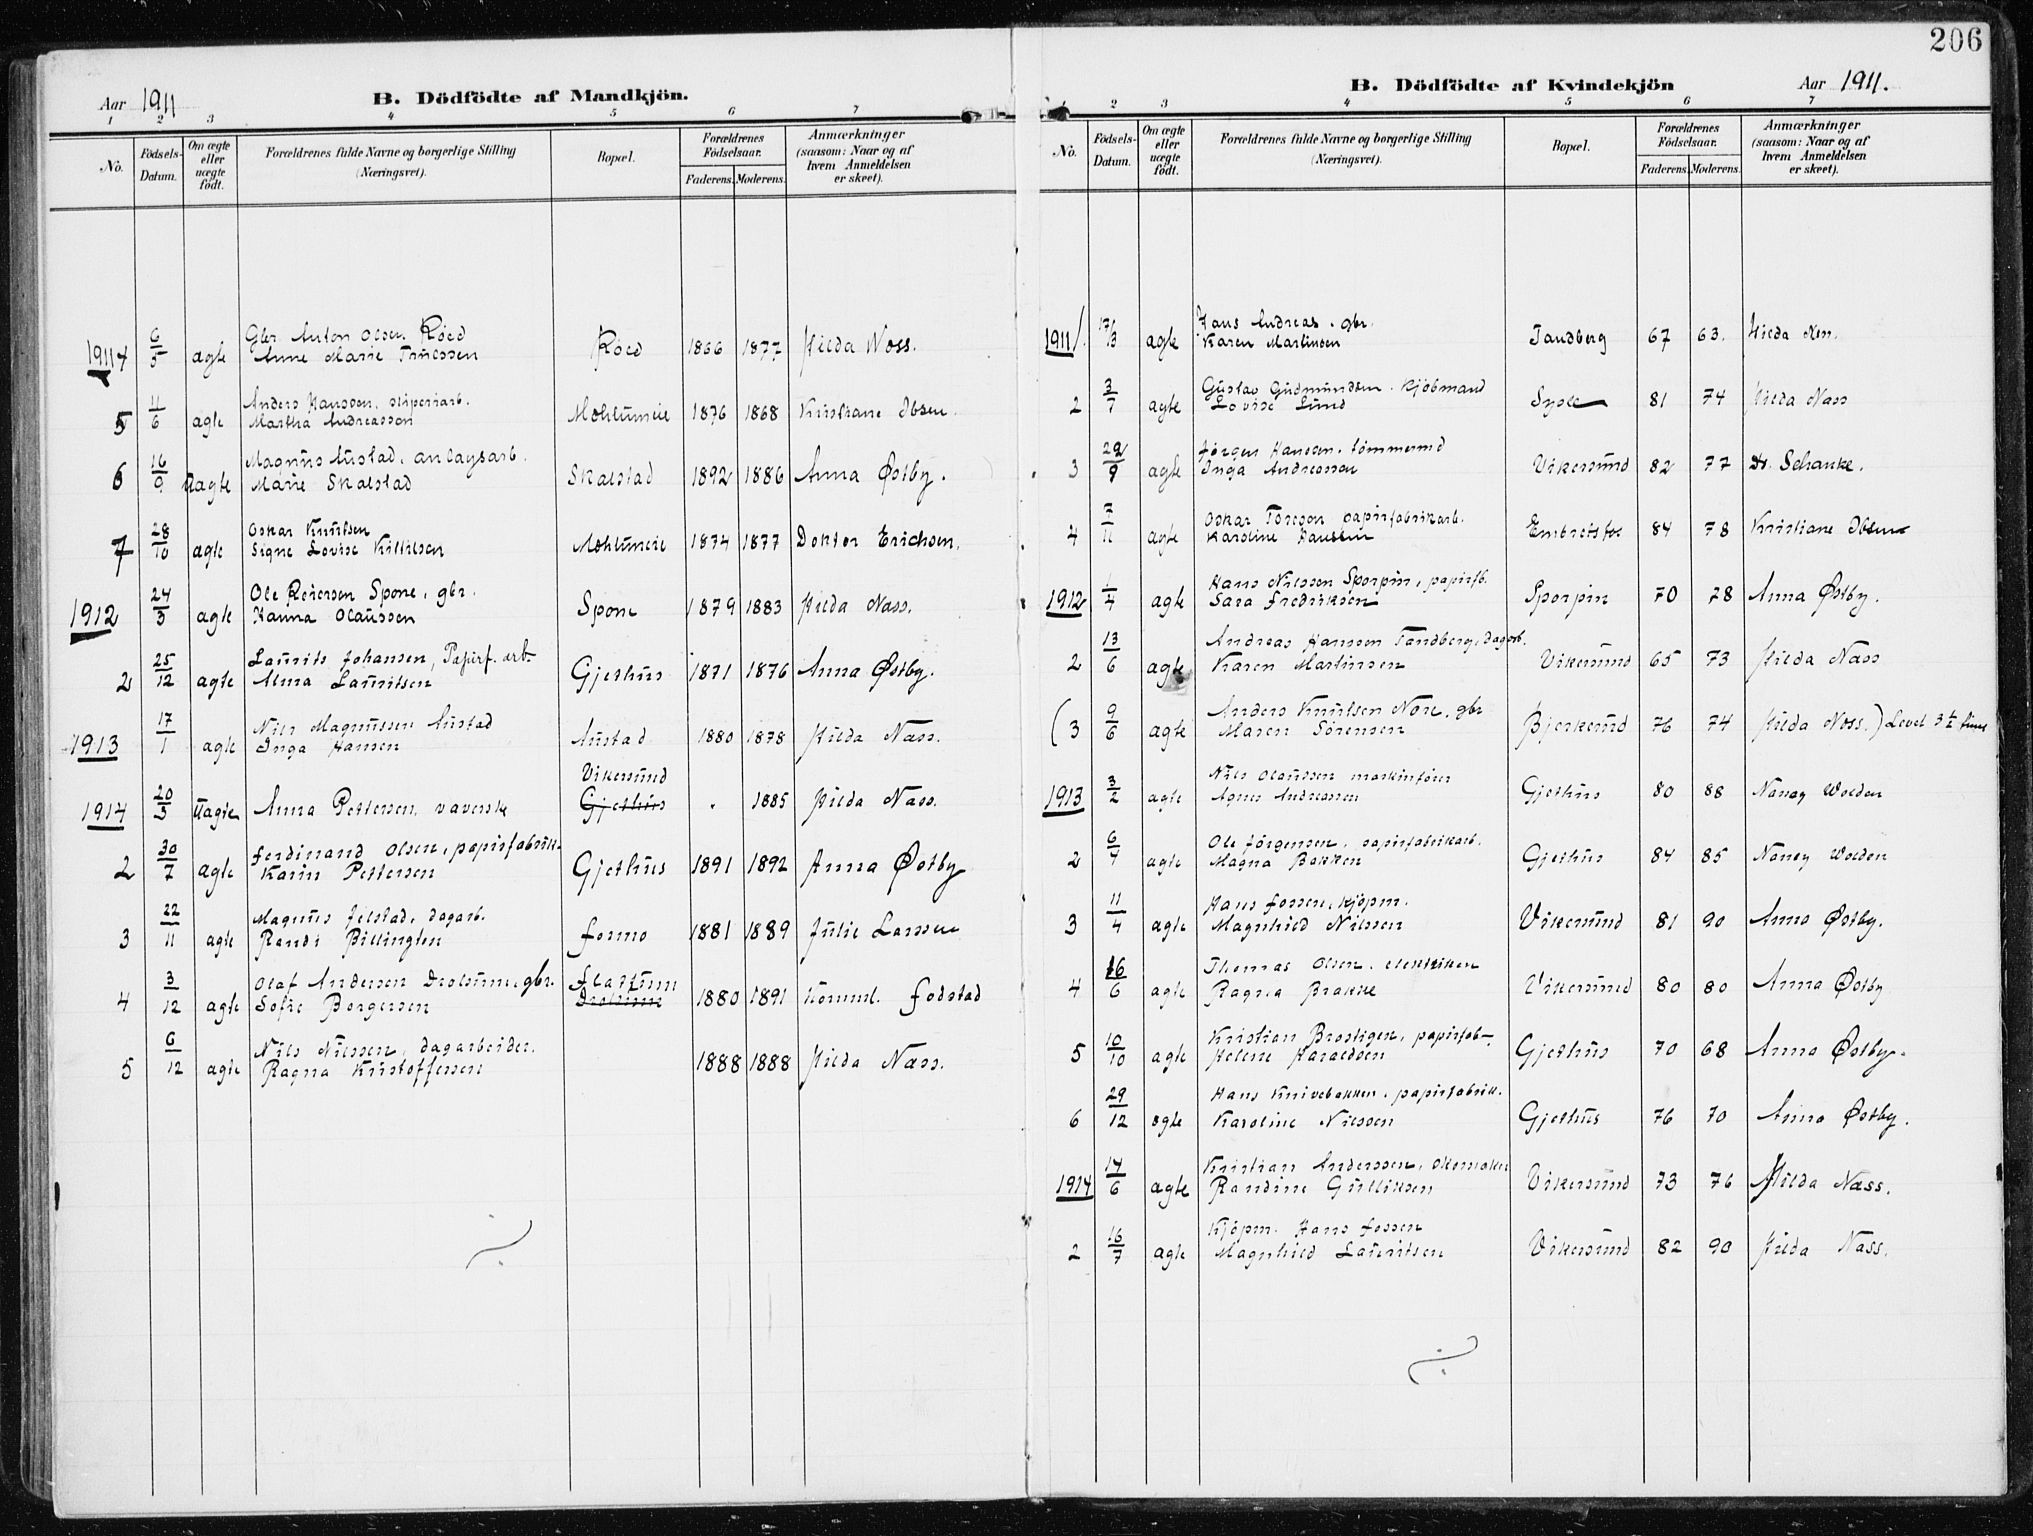 206
Aar 1911
B. Dödfödte af Mandkjön.
1 2 3 4 5 6 7
No.
Födsels-Datum.
Om ægte eller uægte födt.
Forældrenes fulde Navne og borgerlige Stilling (Næringsvei).
Bopæl.
Forældrenes Födselsaar.
Faderens. Moderens.
Anmærkninger (saasom: Naar og af hvem Anmeldelsen er skeet).
1911 4 6/5 ægte Gbr. Anton Olsen Röed Röed 1866 1877 Hilda Næss.
Anne Marie Truessen
5 11/6 ægte Anders Hanssen, sliperiarb. Mohlumeie 1876 1868 Kristiane Ibsen.
Martha Andreassen
6 16/9 Uægte Magnus Austad, anlægsarb. Skalstad 1892 1886 Anna Østby.
Marie Skalstad
7 28/10 ægte Oskar Knutsen Mohlumeie 1874 1877 Doktor Erichsen.
Signe Lovise Killilsen
1912 24/3 ægte Ole Reiersen Spone, gbr. Spone 1879 1883 Hilda Næss.
Hanna Olaussen
2 25/12 ægte Laurits Johansen, Papirf. arb. Gjethus 1871 1876 Anna Østby.
Alma Lauritsen
1913 17/1 ægte Nils Magnussen Austad Austad 1880 1878 Hilda Næss.
Inga Hansen
1914 20/3 Uægte Anna Pettersen, væverske Vikersund Gjethus . 1885 Hilda Næss.
2 30/7 ægte Ferdinand Olsen, papirfabrik. Gjethus 1891 1892 Anna Østby
Karin Pettersen
3 22/11 ægte Magnus Jelstad, dagarb. Formo 1881 1889 Julie Larsen
Randi Billington
4 3/12 ægte Olaf Andersen Drolsum, gbr. Flattum Drolsum 1880 1891 Komml. Fodstad
Sofie Borgersen
5 6/12 ægte Nils Nilssen, dagarbeider. 1888 1888 Hilda Næss.
Ragna Kristoffersen
B. Dödfödte af Kvindekjön
Aar 1911.
1 2 3 4 5 6 7
No.
Födsels-Datum.
Om ægte eller uægte födt.
Forældrenes fulde Navne og borgerlige Stilling (Næringsvei).
Bopæl.
Forældrenes Födselsaar.
Faderens. Moderens.
Anmærkninger (saasom: Naar og af hvem Anmeldelsen er skeet).
1911 1. 17/3 ægte Hans Andreas. gbr. Tandberg 67 63. Hilda Næss.
Karen Martinsen
2 3/7 ægte Gustav Gudmundsen. Kjöbmand Sysle 81 74 Hilda Næss
Lovise Lund
3 29/9 ægte Jörgen Hansen. tömmermd Vikersund 82 77 Dr. Schanke.
Inga Andreassen
4 7/11 ægte Oskar papirfabrikarb. Embretsfos 84 78 Kristiane Ibsen
Karoline Hanssen
1912 1/4 ægte Hans Nilssen Sporpin, papirfb. Sporpin 70 78 Anna Østby.
Sara Fredriksen
2 13/6 ægte Andreas Hanssen Tandberg, dagarb. Vikersund 65 73 Hilda Næss
Karen Martinsen
(3 9/6 ægte Anders Knutsen Nore, gbr Bjerkerud 76 74 Hilda Næss.) Levet 3½ time
Maren Sörensen
1913 3/2 ægte Nils Olaussen maskinförer Gjethus 80 88 Nancy Wolden
Agnes Andreassen
2 6/4 ægte Ole Jörgensen, papirfabrikarb. Gjethus 84 85 Nancy Wolden
Magna Bakken
3 11/4 ægte Hans Fossen, kjöpm. Vikersund 81 90 Anna Østby.
Magnhild Nilssen
4 16/6 ægte Thomas Olsen. elektriker Vikersund 80 80 Anna Østby
Ragna Brække
5 10/10 ægte Kristian Brostigen, papirfab. Gjethus 70 68 Anna Østby.
Helene Haraldsen
6 29/12 ægte Hans Knivebakken. papirfabrik. Gjethus 76 70 Anna Østby.
Karoline Nilssen
1914 14/6 ægte Kristian Anderssen, skomaker Vikersund 73 76 Hilda Næss.
Randine Gulliksen
2 16/7 ægte Kjöpm. Hans Fossen Vikersund 82 90 Hilda Næss.
Magnhild Lauritsen